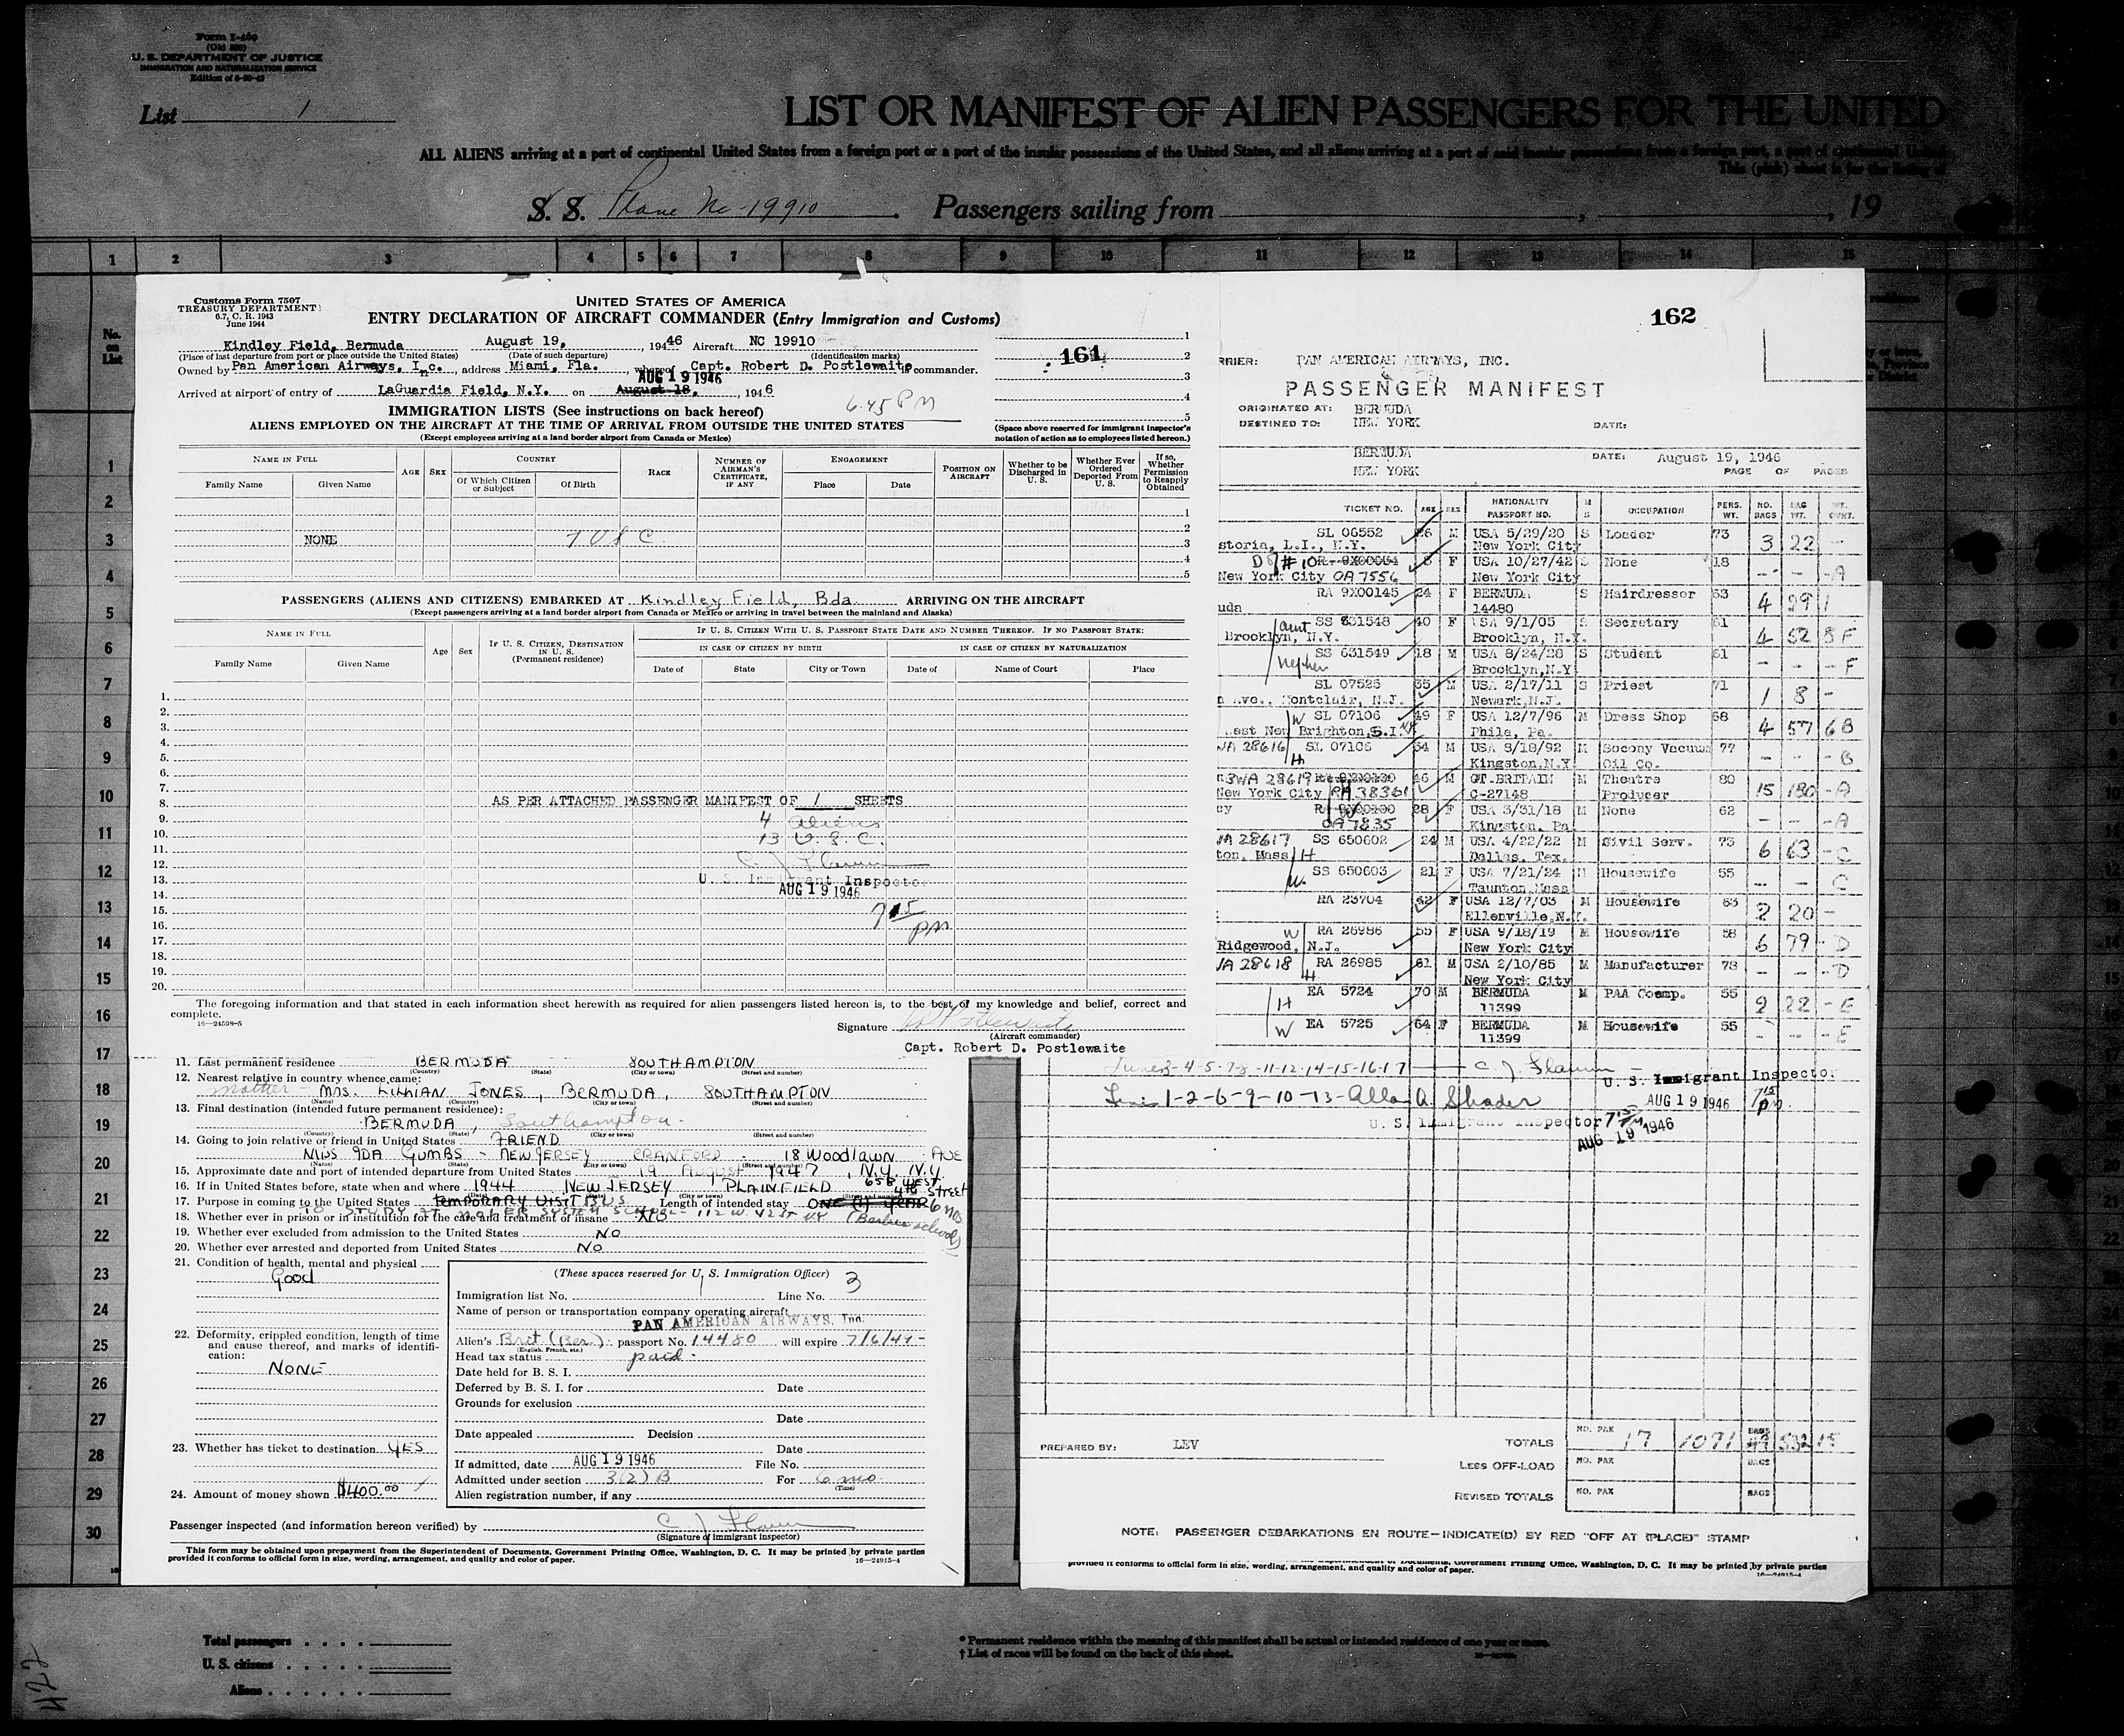 Form I-466
(Old 500)
U. S. DEPARTMENT OF JUSTICE
IMMIGRATION AND NATURALIZATION SERVICE
List 1
LIST OR MANIFEST OF ALIEN PASSENGERS FOR THE UNITED
ALL ALIENS arriving at a port of continental United States from a foreign port or a port of the insular possessions of the United States, and all aliens arriving at a port of said insular possessions from a foreign port, a port of continental United
This (pink) sheet is for the listing of
S. S. Plane No 19910 . Passengers sailing from , , 19
1 2 3 4 5 6 7 8 9 10 11 12 13 14 15
No. on List
Customs Form 7507
TREASURY DEPARTMENT
6.7, C. R. 1943
June 1944
UNITED STATES OF AMERICA
ENTRY DECLARATION OF AIRCRAFT COMMANDER (Entry Immigration and Customs)
Kindley Field, Bermuda August 19, , 1946 Aircraft NC 19910
(Place of last departure from port or place outside the United States) (Date of such departure) (Identification marks)
Owned by Pan American Airways, Inc. , address Miami, Fla. whereof Capt. Robert D. Postlewaite is commander.
AUG 19 1946
Arrived at airport of entry of LaGuardia Field, N.Y. on August 18, , 1946
6.45 PM
161
1
2
3
4
5
IMMIGRATION LISTS (See instructions on back hereof)
ALIENS EMPLOYED ON THE AIRCRAFT AT THE TIME OF ARRIVAL FROM OUTSIDE THE UNITED STATES
(Except employees arriving at a land border airport from Canada or Mexico)
(Space above reserved for immigrant inspector's notation of action as to employees listed hereon.)
NAME IN FULL AGE SEX COUNTRY RACE NUMBER OF AIRMAN'S CERTIFICATE, IF ANY ENGAGEMENT POSITION ON AIRCRAFT Whether to be Discharged in U. S. Whether Ever Ordered Deported From U. S. If so, Whether Permission to Reapply Obtained
Family Name Given Name Of Which Citizen or Subject Of Birth Place Date
NONE 7 US C.
PASSENGERS (ALIENS AND CITIZENS) EMBARKED AT Kindley Field, Bda. ARRIVING ON THE AIRCRAFT
(Except passengers arriving at a land border airport from Canada or Mexico or arriving in travel between the mainland and Alaska)
NAME IN FULL Age Sex IF U. S. CITIZEN, DESTINATION IN U. S. (Permanent residence) IF U. S. CITIZEN WITH U. S. PASSPORT STATE DATE AND NUMBER THEREOF. IF NO PASSPORT STATE:
IN CASE OF CITIZEN BY BIRTH IN CASE OF CITIZEN BY NATURALIZATION
Family Name Given Name Date of State City or Town Date of Name of Court Place
1.
2.
3.
4.
5.
6.
7.
8. AS PER ATTACHED PASSENGER MANIFEST OF 1 SHEETS
9. 4 aliens
10. 13 U.S.C.
11.
12. C. J. Flamm
13. U. S. Immigrant Inspector
14. AUG 19 1946
15. 7 15
16. PM
17.
18.
19.
20.
The foregoing information and that stated in each information sheet herewith as required for alien passengers listed hereon is, to the best of my knowledge and belief, correct and
complete.
16—24598-5
Signature
(Aircraft commander)
Capt. Robert D. Postlewaite
11. Last permanent residence BERMUDA SOUTHAMPTON
(Country) (State) (City or town) (Street and number)
12. Nearest relative in country whence came:
mother - MRS. LILLIAN JONES, BERMUDA, SOUTHAMPTON
(Name) (Country) (City or town) (Street and number)
13. Final destination (intended future permanent residence):
BERMUDA, Southampton.
(Country) (State) (City or town) (Street and number)
14. Going to join relative or friend in United States FRIEND
MISS IDA GUMBS - NEW JERSEY CRANFORD - 18 Woodlawn AVE
(Name) (State) (City or town) (Street and number)
15. Approximate date and port of intended departure from United States 19 AUGUST 1947, N.Y. N.Y.
16. If in United States before, state when and where 1944 NEW JERSEY PLAINFIELD 658 WEST 4th STREET
17. Purpose in coming to the United States TEMPORARY VISIT Length of intended stay ONE (1) YEAR 6 mos
TO STUDY AT MOLER SYSTEM SCHOOL - 112 W. 42 ST NY (Barber School)
18. Whether ever in prison or in institution for the care and treatment of insane NO
19. Whether ever excluded from admission to the United States NO
20. Whether ever arrested and deported from United States NO
21. Condition of health, mental and physical
Good
22. Deformity, crippled condition, length of time and cause thereof, and marks of identification:
NONE
23. Whether has ticket to destination YES
24. Amount of money shown $400.00
(These spaces reserved for U. S. Immigration Officer)
Immigration list No. 1 Line No. 3
Name of person or transportation company operating aircraft
PAN AMERICAN AIRWAYS, Inc.
Alien's Brit (Ber.) passport No. 14480 will expire 7/6/47
(English, French, etc.)
Head tax status paid.
Date held for B. S. I.
Deferred by B. S. I. for Date
Grounds for exclusion
Date
Date appealed Decision
Date
If admitted, date AUG 19 1946 File No.
Admitted under section 3(2) B For 6 mo.
(Time)
Alien registration number, if any
Passenger inspected (and information hereon verified) by C J Flamm
(Signature of immigrant inspector)
This form may be obtained upon prepayment from the Superintendent of Documents, Government Printing Office, Washington, D. C. It may be printed by private parties
provided it conforms to official form in size, wording, arrangement, and quality and color of paper.
16—24915-4
162
RRIER: PAN AMERICAN AIRWAYS, INC.
PASSENGER MANIFEST
ORIGINATED AT: BERMUDA
DESTINED TO: NEW YORK DATE:
BERMUDA DATE: August 19, 1946
NEW YORK PAGE OF PAGES
TICKET NO. AGE SEX NATIONALITY PASSPORT NO. M S OCCUPATION PERS. WT. NO. BAGS BAG WT. WT. OVWT.
SL 06552 26 M USA 5/29/20 S Loader 73 3 22 -
storia, L.I., N.Y. New York City
D8 #10 R 9X00054 3 F USA 10/27/42 S None 18 - - - A
New York City OA 7556 New York City
RA 9X00145 24 F BERMUDA S Hairdresser 63 4 29 1
uda 14480
aunt SS 631548 40 F USA 9/1/05 S Secretary 61 4 52 8 F
Brooklyn, N.Y. Brooklyn, N.Y.
nephew SS 631549 18 M USA 8/24/28 S Student 61 - - - F
Brooklyn, N.Y.
SL 07525 35 M USA 2/17/11 S Priest 71 1 8 -
n Ave., Montclair, N.J. Newark, N.J.
W SL 07106 49 F USA 12/7/96 M Dress Shop 68 4 57 6 B
West New Brighton, S.I. NY Phila, Pa.
WA 28616 H SL 07105 54 M USA 8/18/92 M Socony Vacuum 77 - - - B
Kingston, N.Y. Oil Co.
WA 28619 46 M GT. BRITAIN M Theatre 80 15 180 - A
New York City RA 38361 C-27148 Producer
cy W 28 F USA 3/31/18 M None 62 - - - A
OA 7835 Kingston, Pa.
WA 28617 SS 650602 24 M USA 4/22/22 M Civil Serv. 75 6 63 - C
ton, Mass H Dallas, Tex.
W. SS 650603 21 F USA 7/21/24 M Housewife 55 - - C
Taunton, Mass
RA 23704 42 F USA 12/7/03 M Housewife 63 2 20 -
Ellenville, N.Y.
W RA 26986 55 F USA 9/18/19 M Housewife 58 6 79 - D
Ridgewood, N.J. New York City
WA 28618 H RA 26985 61 M USA 2/10/85 M Manufacturer 73 - - - D
New York City
H EA 5724 70 M BERMUDA M PAA Comp. 55 2 22 - E
11399
W EA 5725 64 F BERMUDA M Housewife 55 - - - E
11399
Lines 3-4-5-7-8-11-12-14-15-16-17 — C. J. Flamm
U. S. Immigrant Inspector
AUG 19 1946 7 15 PM
Lines 1-2-6-9-10-13- Allan A. Shader
U. S. Immigrant Inspector 7 15
AUG 19 1946
PREPARED BY: LEV
TOTALS NO. PAX 17 1071 BAGS 47 532 15
LESS OFF-LOAD NO. PAX BAGS
REVISED TOTALS NO. PAX BAGS
NOTE: PASSENGER DEBARKATIONS EN ROUTE—INDICATE(D) BY RED "OFF AT (PLACE)" STAMP
provided it conforms to official form in size, wording, arrangement, and quality and color of paper.
16—24915-4
Total passengers
U. S. citizens
Aliens
* Permanent residence within the meaning of this manifest shall be actual or intended residence of one year or more.
† List of races will be found on the back of this sheet.
422